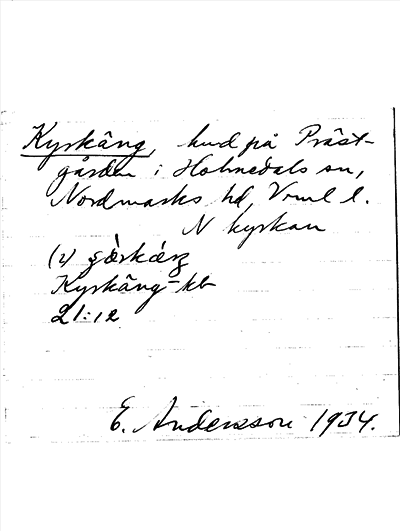 Kyrkäng, hud på Präst-
gården i Holmedals sn,
Nordmarks hd, Vrml l.
N kyrkan
(2)
Kyrkäng-kb
21:12
E. Andersson 1934.